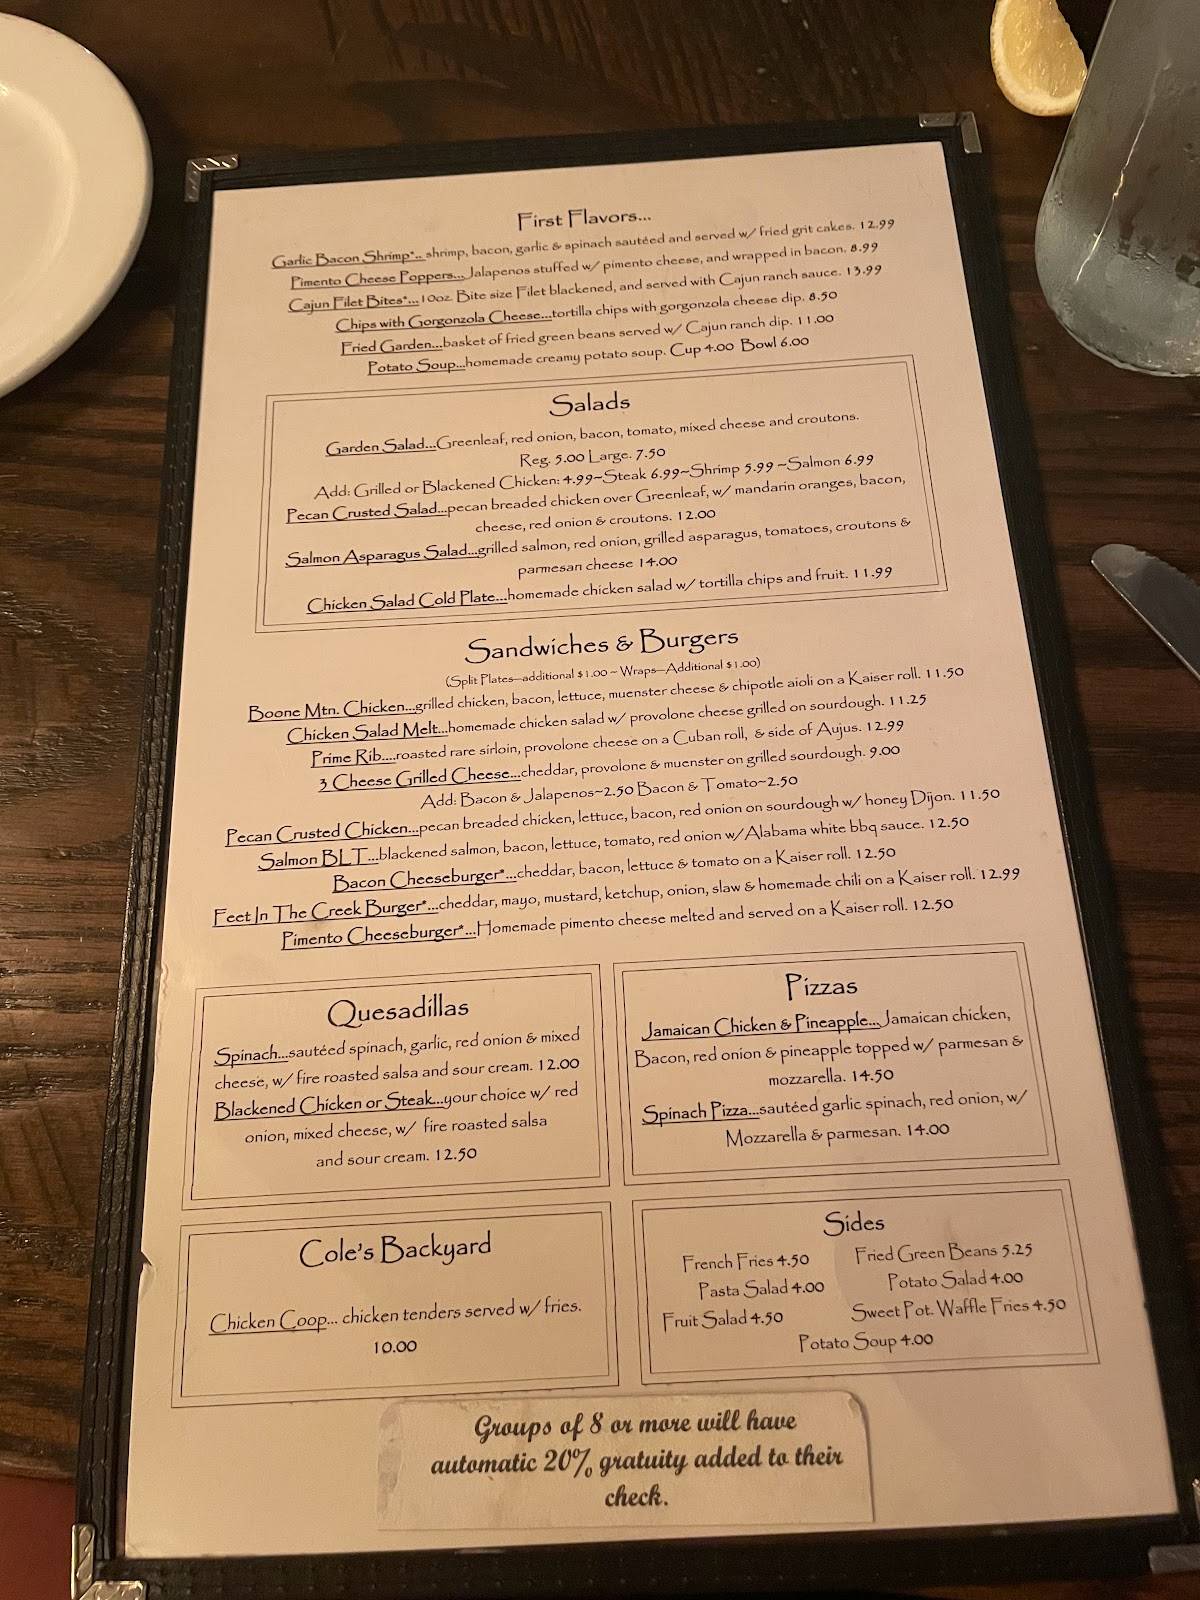 First Flavors...
Garlic Bacon Shrimp*.. shrimp, bacon, garlic & spinach sautéed and served w/ fried grit cakes. 12.99
Pimento Cheese Poppers...Jalapenos stuffed w/ pimento cheese, and wrapped in bacon. 8.99
Cajun Filet Bites*...10oz. Bite size Filet blackened, and served with Cajun ranch sauce. 13.99
Chips with Gorgonzola Cheese...tortilla chips with gorgonzola cheese dip. 8.50
Fried Garden...basket of fried green beans served w/ Cajun ranch dip. 11.00
Potato Soup...homemade creamy potato soup. Cup 4.00 Bowl 6.00
Salads
Garden Salad...Greenleaf, red onion, bacon, tomato, mixed cheese and croutons.
Reg. 5.00 Large. 7.50
Add: Grilled or Blackened Chicken: 4.99~Steak 6.99~Shrimp 5.99 ~Salmon 6.99
Pecan Crusted Salad...pecan breaded chicken over Greenleaf, w/ mandarin oranges, bacon,
cheese, red onion & croutons. 12.00
Salmon Asparagus Salad...grilled salmon, red onion, grilled asparagus, tomatoes, croutons &
parmesan cheese 14.00
Chicken Salad Cold Plate...homemade chicken salad w/ tortilla chips and fruit. 11.99
Sandwiches & Burgers
(Split Plates—additional $1.00 ~ Wraps—Additional $1.00)
Boone Mtn. Chicken...grilled chicken, bacon, lettuce, muenster cheese & chipotle aioli on a Kaiser roll. 11.50
Chicken Salad Melt...homemade chicken salad w/ provolone cheese grilled on sourdough. 11.25
Prime Rib....roasted rare sirloin, provolone cheese on a Cuban roll, & side of Aujus. 12.99
3 Cheese Grilled Cheese...cheddar, provolone & muenster on grilled sourdough. 9.00
Add: Bacon & Jalapenos~2.50 Bacon & Tomato~2.50
Pecan Crusted Chicken...pecan breaded chicken, lettuce, bacon, red onion on sourdough w/ honey Dijon. 11.50
Salmon BLT...blackened salmon, bacon, lettuce, tomato, red onion w/Alabama white bbq sauce. 12.50
Bacon Cheeseburger*...cheddar, bacon, lettuce & tomato on a Kaiser roll. 12.50
Feet In The Creek Burger*...cheddar, mayo, mustard, ketchup, onion, slaw & homemade chili on a Kaiser roll. 12.99
Pimento Cheeseburger*...Homemade pimento cheese melted and served on a Kaiser roll. 12.50
Quesadillas
Spinach...sautéed spinach, garlic, red onion & mixed
cheese, w/ fire roasted salsa and sour cream. 12.00
Blackened Chicken or Steak...your choice w/ red
onion, mixed cheese, w/ fire roasted salsa
and sour cream. 12.50
Pizzas
Jamaican Chicken & Pineapple...Jamaican chicken,
Bacon, red onion & pineapple topped w/ parmesan &
mozzarella. 14.50
Spinach Pizza...sautéed garlic spinach, red onion, w/
Mozzarella & parmesan. 14.00
Cole's Backyard
Chicken Coop... chicken tenders served w/ fries.
10.00
Sides
French Fries 4.50 Fried Green Beans 5.25
Pasta Salad 4.00 Potato Salad 4.00
Fruit Salad 4.50 Sweet Pot. Waffle Fries 4.50
Potato Soup 4.00
Groups of 8 or more will have
automatic 20% gratuity added to their
check.